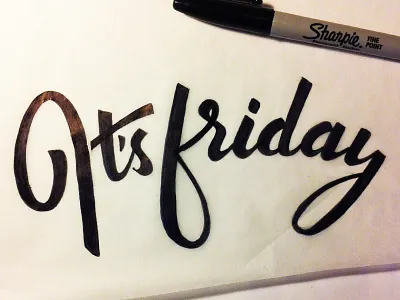 Sharpie
FINE
POINT
It's friday